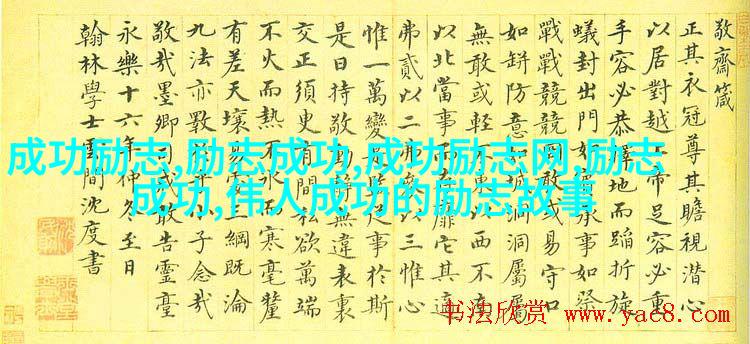 敬齋箴
正其衣冠尊其瞻視潛心
以居對越上帝足容必重
手容必恭擇地而蹈折旋
蟻封出門如賓承事如祭
戰戰兢兢罔敢或易守口
如缾防意如城洞洞屬屬
無敢或輕不東以西不南
以北當事而靡它其適
弗貳以二弗以三惟心
惟一萬變是事於斯
是日持敬動無違表裏
交正須臾有間私欲萬端
不火而熱不冰而寒毫釐
有差天壤易三綱既淪
九法亦斁子念哉
敬哉墨卿司戒敢告靈臺
永樂十六年仲冬至日
翰林學士雲間沈度書
成功励志,励志成功,成功励志网,励志
成功,伟人成功的励志故事
书法欣赏
www.yac8.com